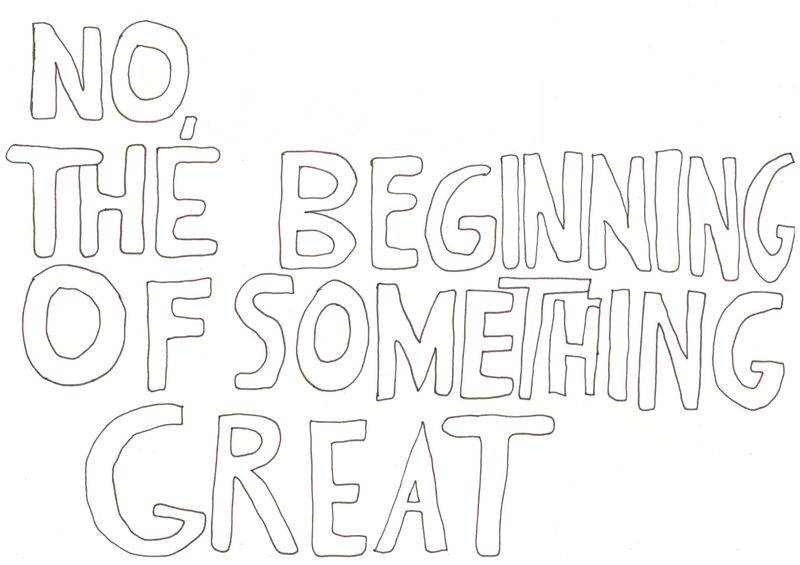 NO,
THE BEGINNING
OF SOMETHING
GREAT